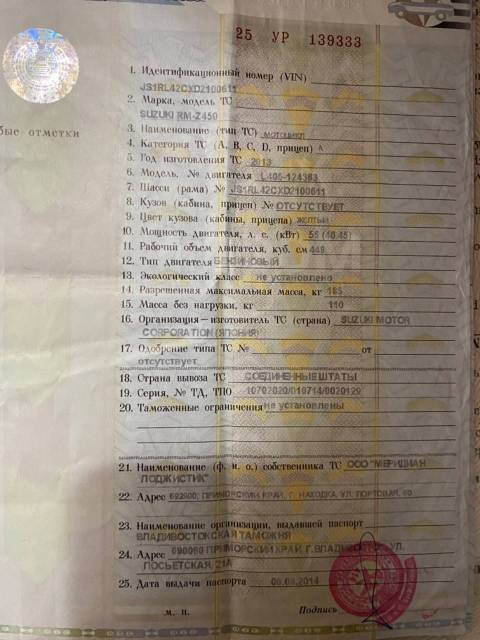 25 УР 139333
1. Идентификационный номер (VIN)
JS1RL42CXD2100611
2. Марка, модель ТС
SUZUKI RM-Z450
бые отметки
3. Наименование (тип ТС) мотоцикл
4. Категория ТС (A, B, C, D, прицеп) A
5. Год изготовления ТС 2013
6. Модель, № двигателя L405-124383
7. Шасси (рама) № JS1RL42CXD2100611
8. Кузов (кабина, прицеп) № ОТСУТСТВУЕТ
9. Цвет кузова (кабины, прицепа) желтый
10. Мощность двигателя, л. с. (кВт) 55 (40.45)
11. Рабочий объем двигателя, куб. см 449
12. Тип двигателя БЕНЗИНОВЫЙ
13. Экологический класс не установлено
14. Разрешенная максимальная масса, кг 185
15. Масса без нагрузки, кг 110
16. Организация—изготовитель ТС (страна) SUZUKI MOTOR
CORPORATION (ЯПОНИЯ)
17. Одобрение типа ТС № от
отсутствует
18. Страна вывоза ТС СОЕДИНЕННЫЕ ШТАТЫ
19. Серия, № ТД, ТПО 10702020/010714/0020129
20. Таможенные ограничения не установлены
21. Наименование (ф. и. о.) собственника ТС ООО "МЕРИДИАН
ЛОДЖИСТИК"
22. Адрес 692900, ПРИМОРСКИЙ КРАЙ, Г. НАХОДКА, УЛ. ПОРТОВАЯ,
23. Наименование организации, выдавшей паспорт
ВЛАДИВОСТОКСКАЯ ТАМОЖНЯ
24. Адрес 690090 ПРИМОРСКИЙ КРАЙ, Г. ВЛАДИВОСТОК УЛ.
ПОСЬЕТСКАЯ, 21А
25. Дата выдачи паспорта 06.08.2014
м. п. Подпись